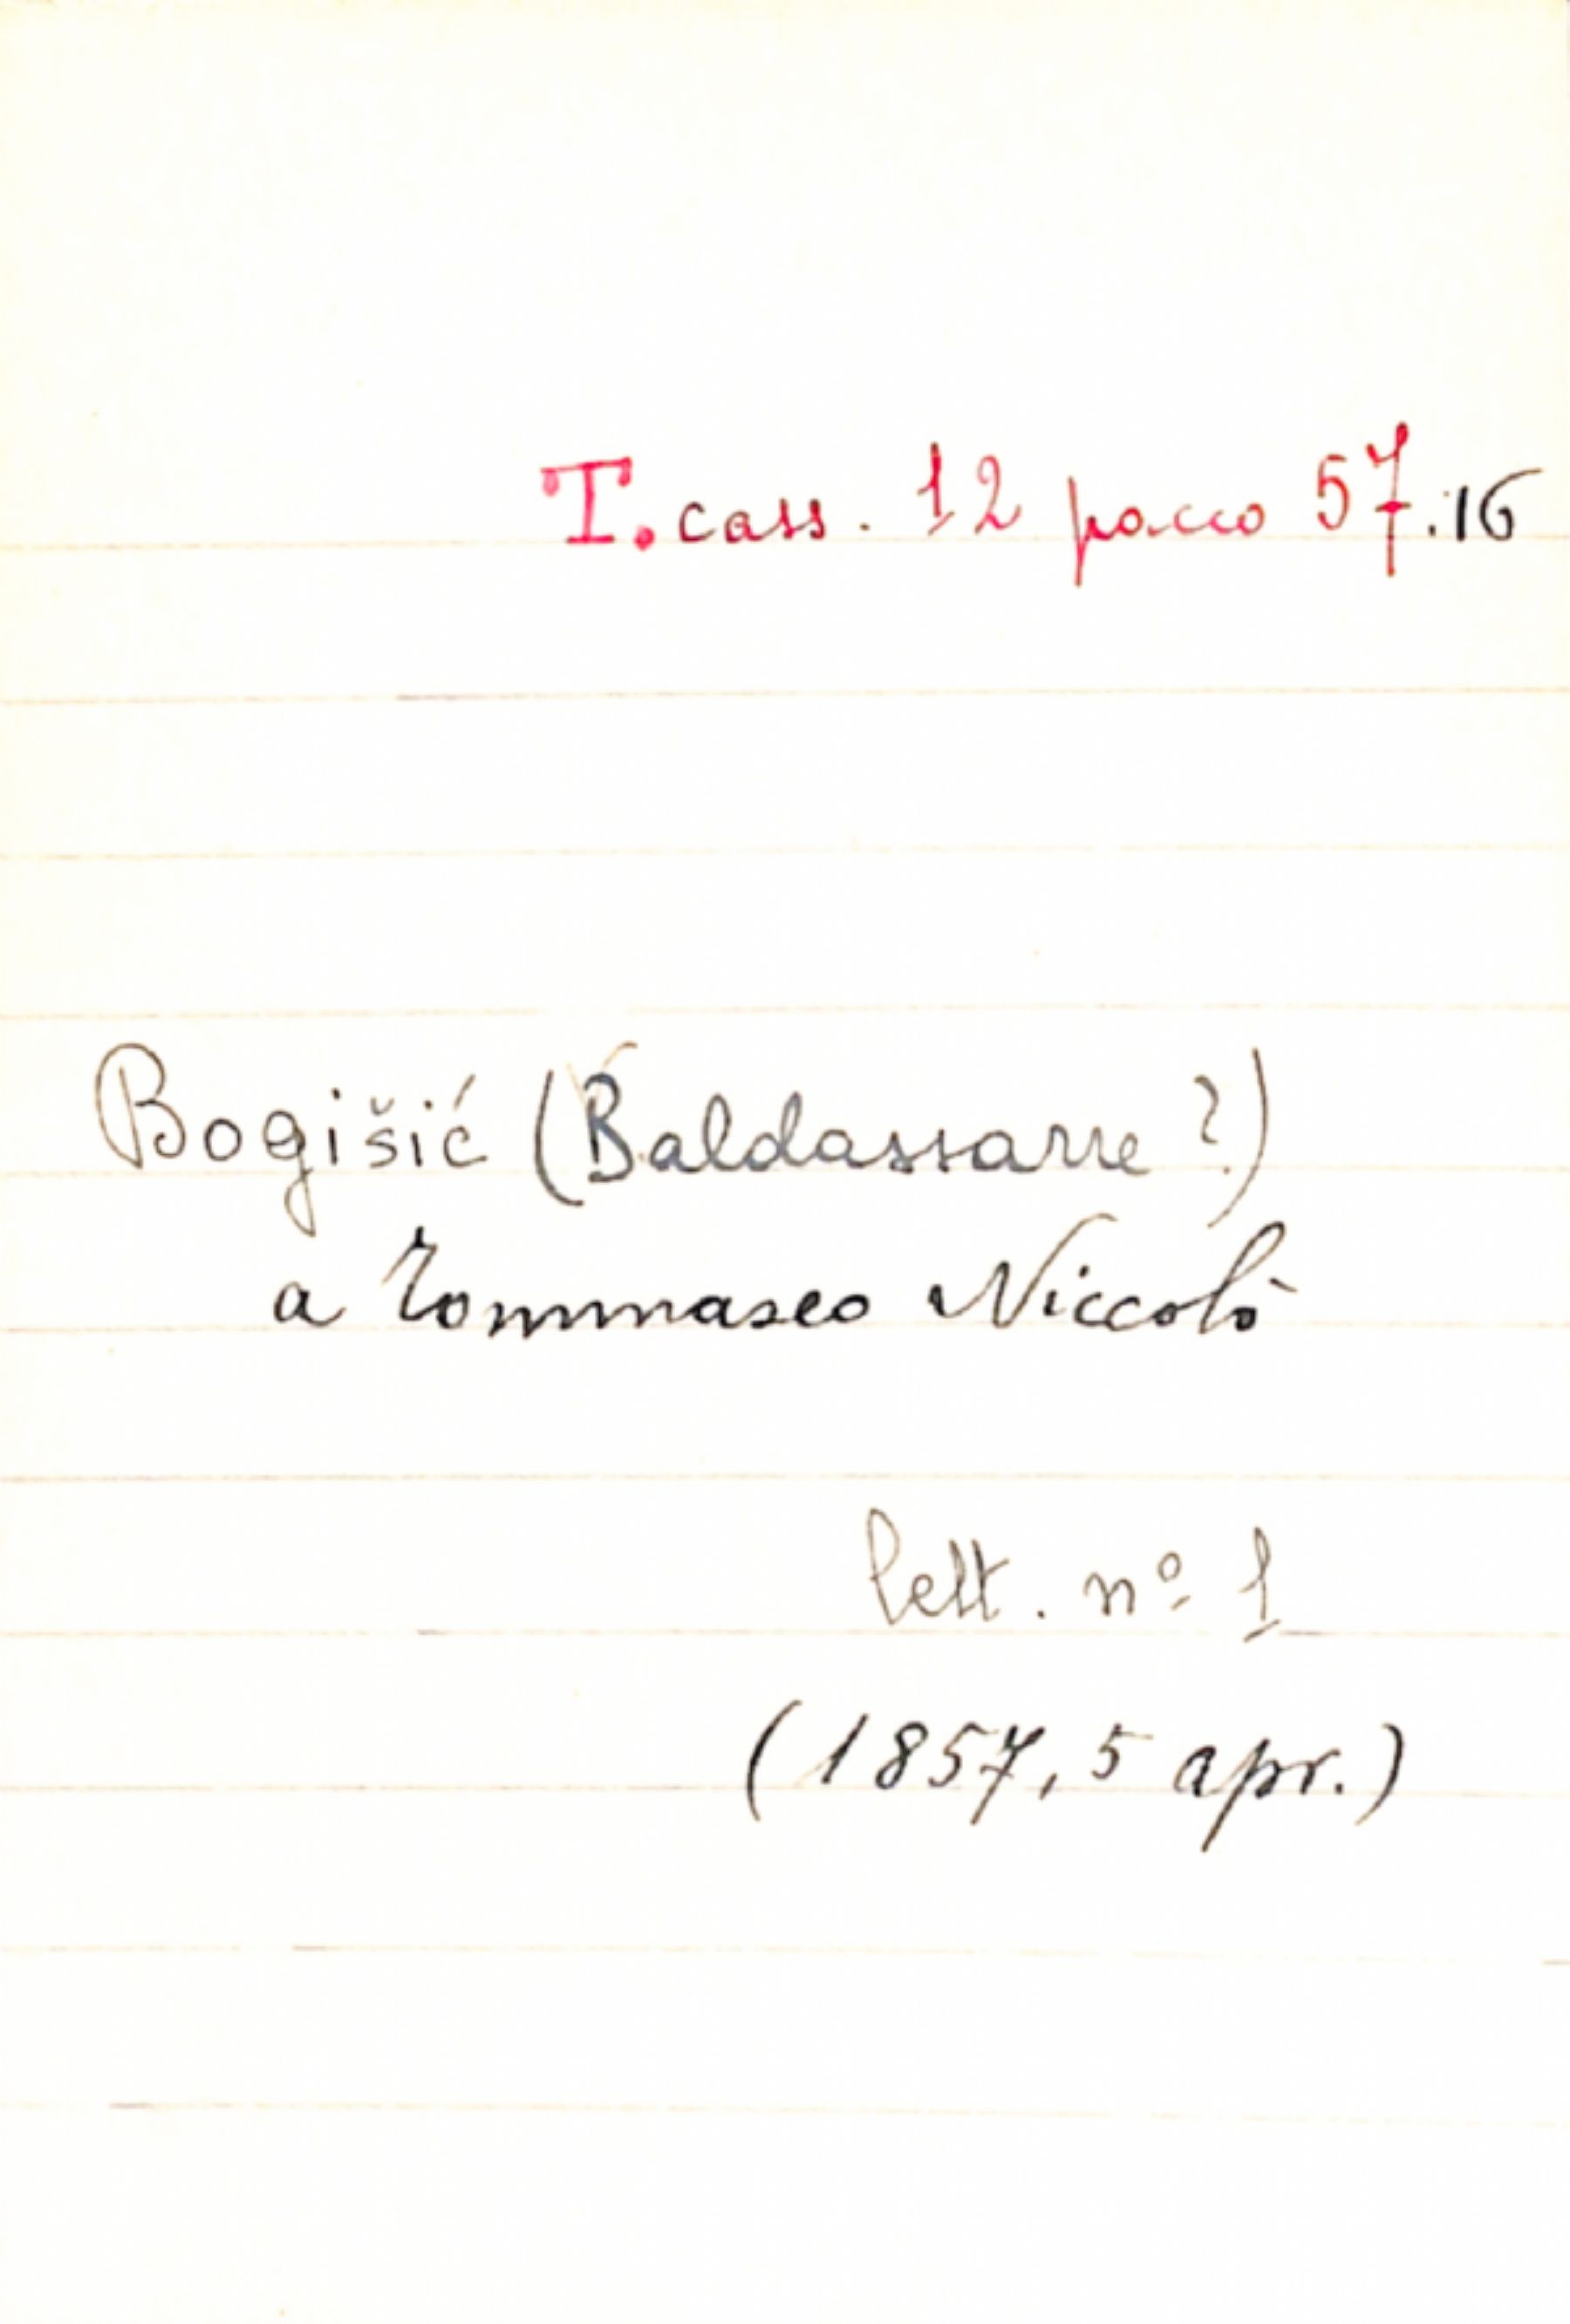 T. cass. 12 pacco 57.16
Bogišić (Baldassarre?)
a Tommaseo Niccolò
lett. nº 1
(1857, 5 apr.)